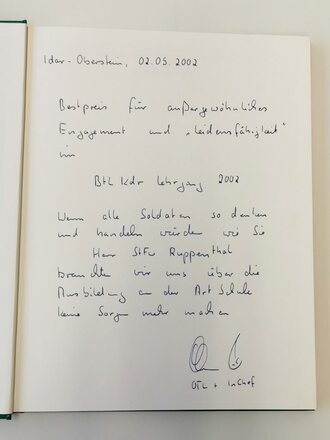 Idar-Oberstein, 02.05.2002
Bestpreis für außergewöhnliches
Engagement und "Leidensfähigkeit"
im
BtL Kdr Lehrgang 2002
Wenn alle Soldaten so denken
und handeln würden wie Sie
Herr StFw Ruppenthal
brauchten wir uns über die
Ausbildung an der Art Schule
keine Sorgen mehr machen
OTL + InChef